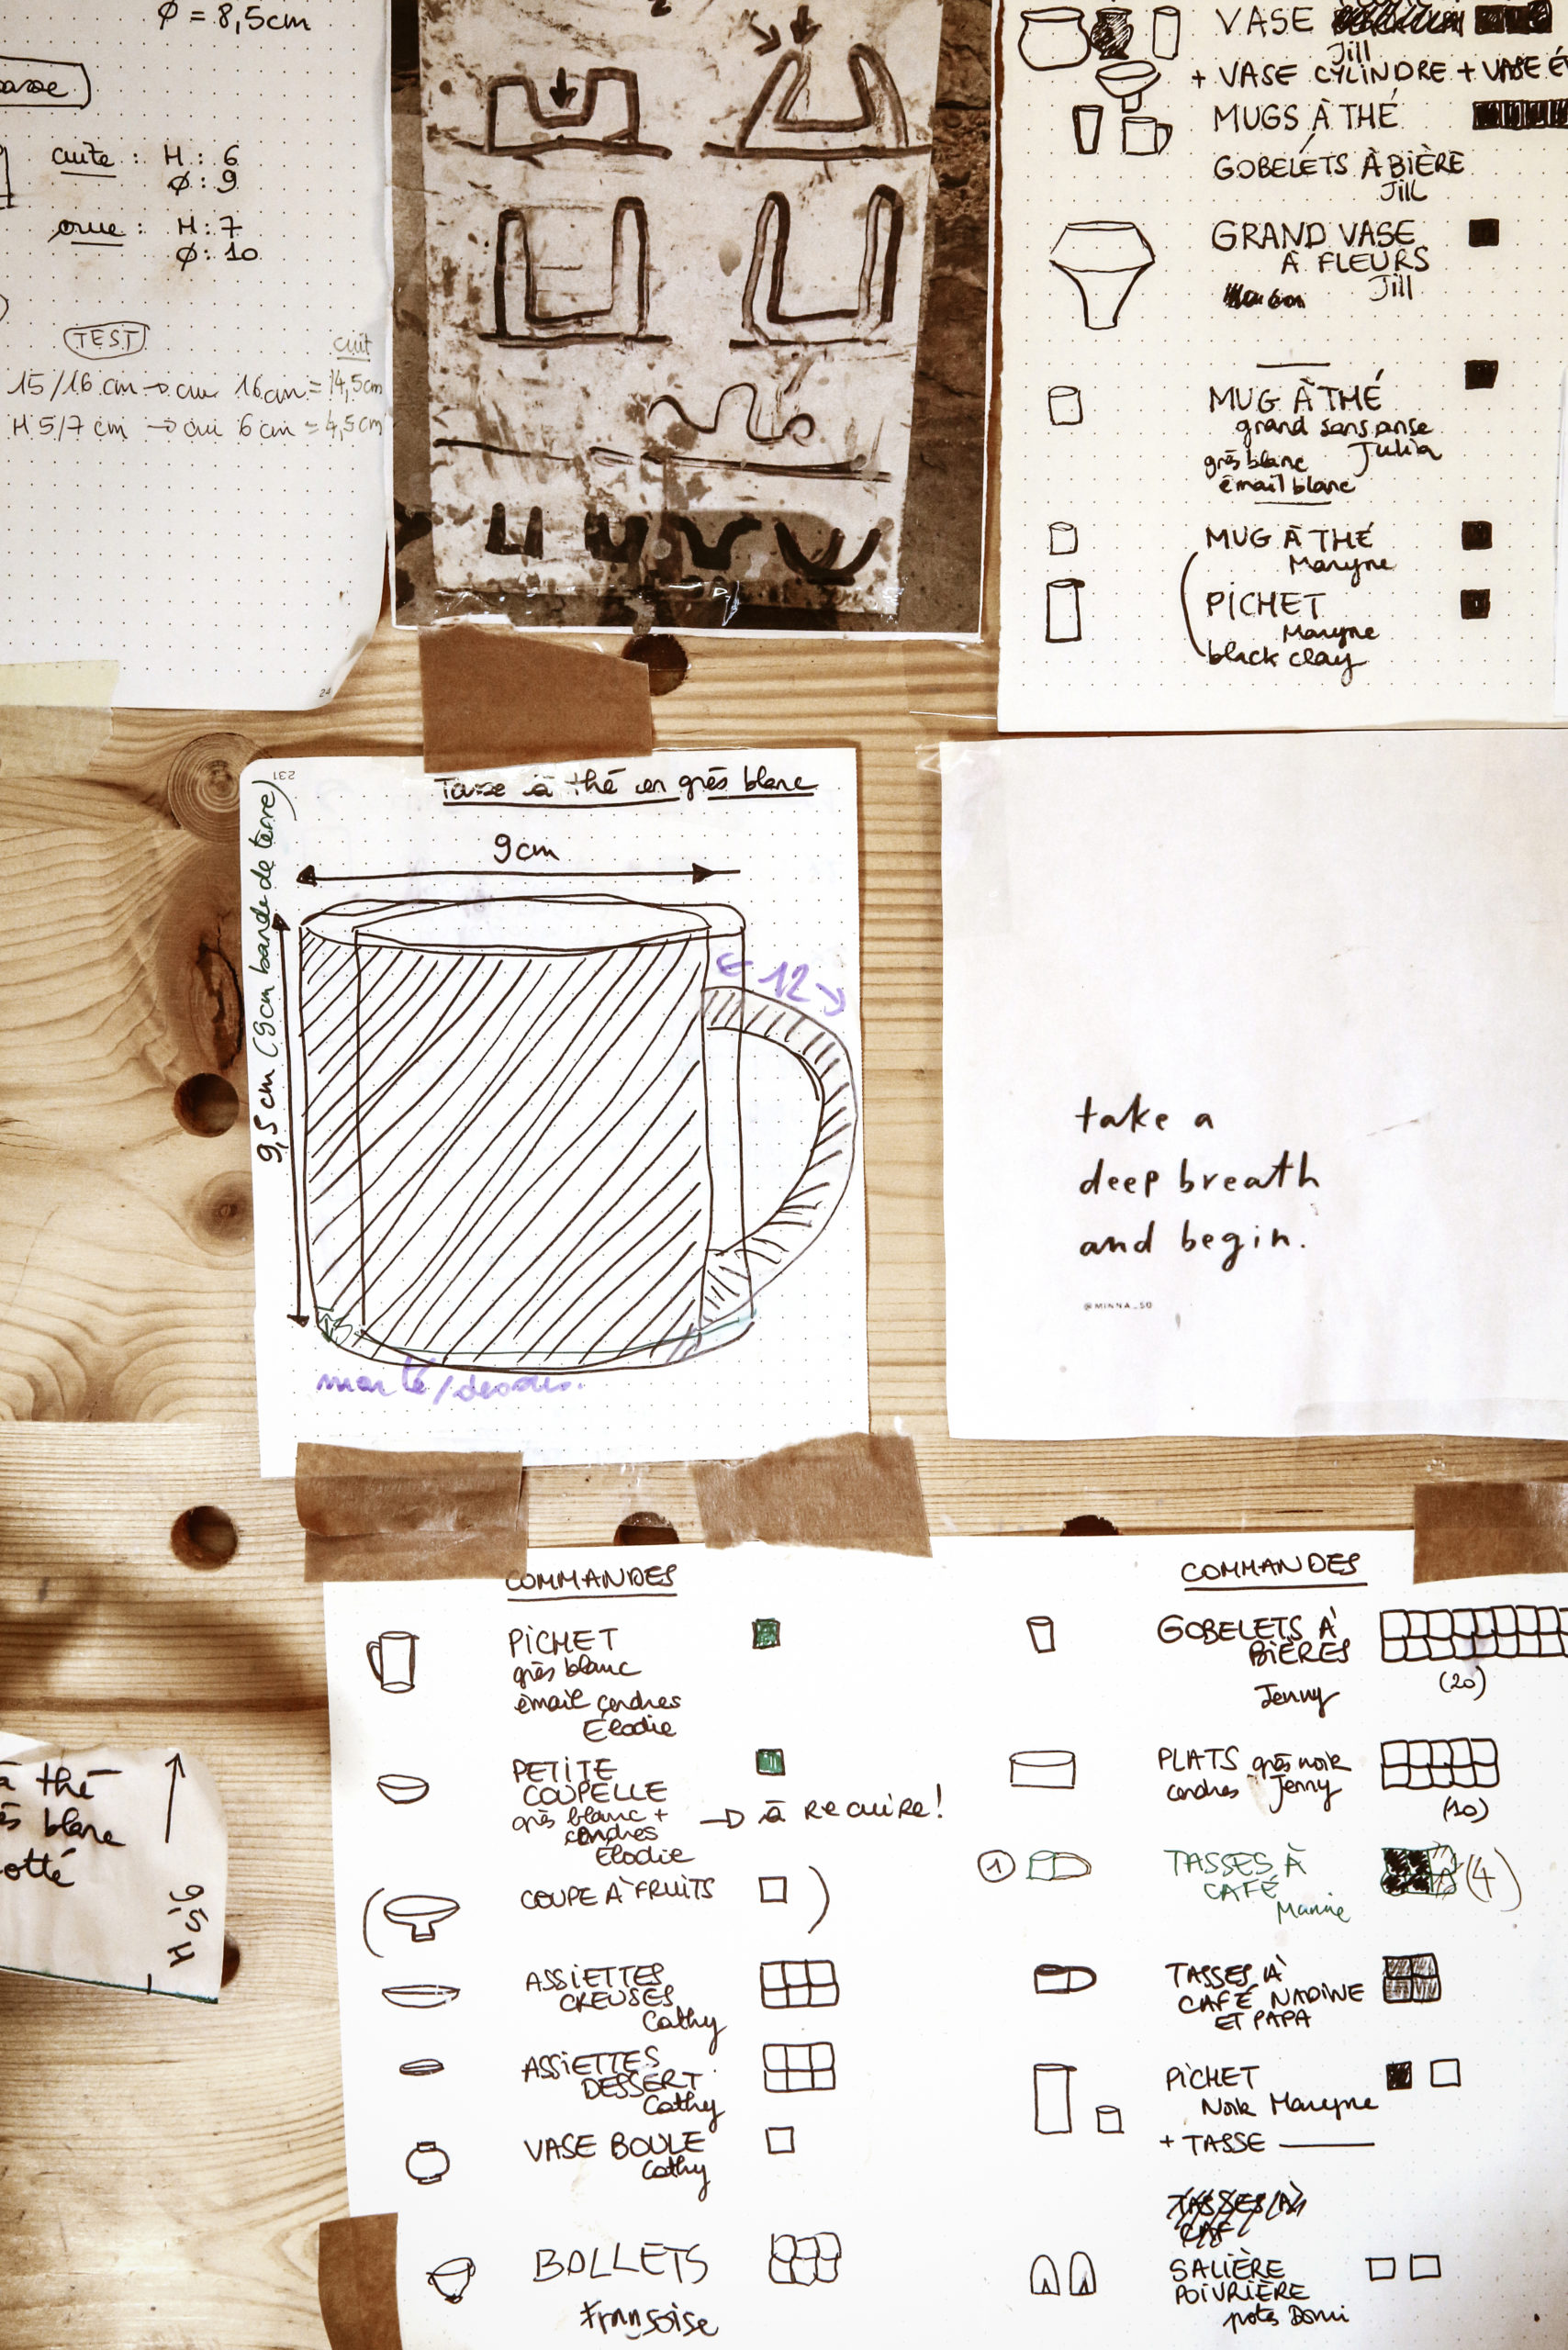 Ø = 8,5cm
cuite : H : 6
Ø : 9
crue : H : 7
Ø : 10
TEST
cuit
15/16 cm → cru 16cm = 14,5cm
H 5/7 cm → cru 6 cm = 4,5cm
24
VASE
Jill
+ VASE CYLINDRE + VASE
MUGS À THÉ
GOBELÉTS À BIÈRE
Jill
GRAND VASE
À FLEURS
Jill
MUG À THÉ
grand sans anse
Julia
grès blanc
émail blanc
MUG À THÉ
Maryne
PICHET
Maryne
black clay
231
Tasse à thé en grès blanc
9cm
9,5 cm (9cm bande de terre)
← 12 →
take a
deep breath
and begin.
@MINNA_SO
à thé
blanc
9,5 H
COMMANDES
PICHET
grès blanc
émail cendres
Élodie
PETITE
COUPELLE
grès blanc +
cendres
Élodie
→ à recuire !
(COUPE À FRUITS)
ASSIETTES
CREUSES
Cathy
ASSIETTES
DESSERT
Cathy
VASE BOULE
Cathy
BOLLETS
Françoise
COMMANDES
GOBELETS À
BIÈRES
Jenny
(20)
PLATS grès noir
cendres Jenny
(10)
1
TASSES À
CAFÉ
(4)
TASSES À
CAFÉ NADINE
ET PAPA
PICHET
Noir Maryne
+ TASSE
TASSES À
CAF
SALIÈRE
POIVRIÈRE